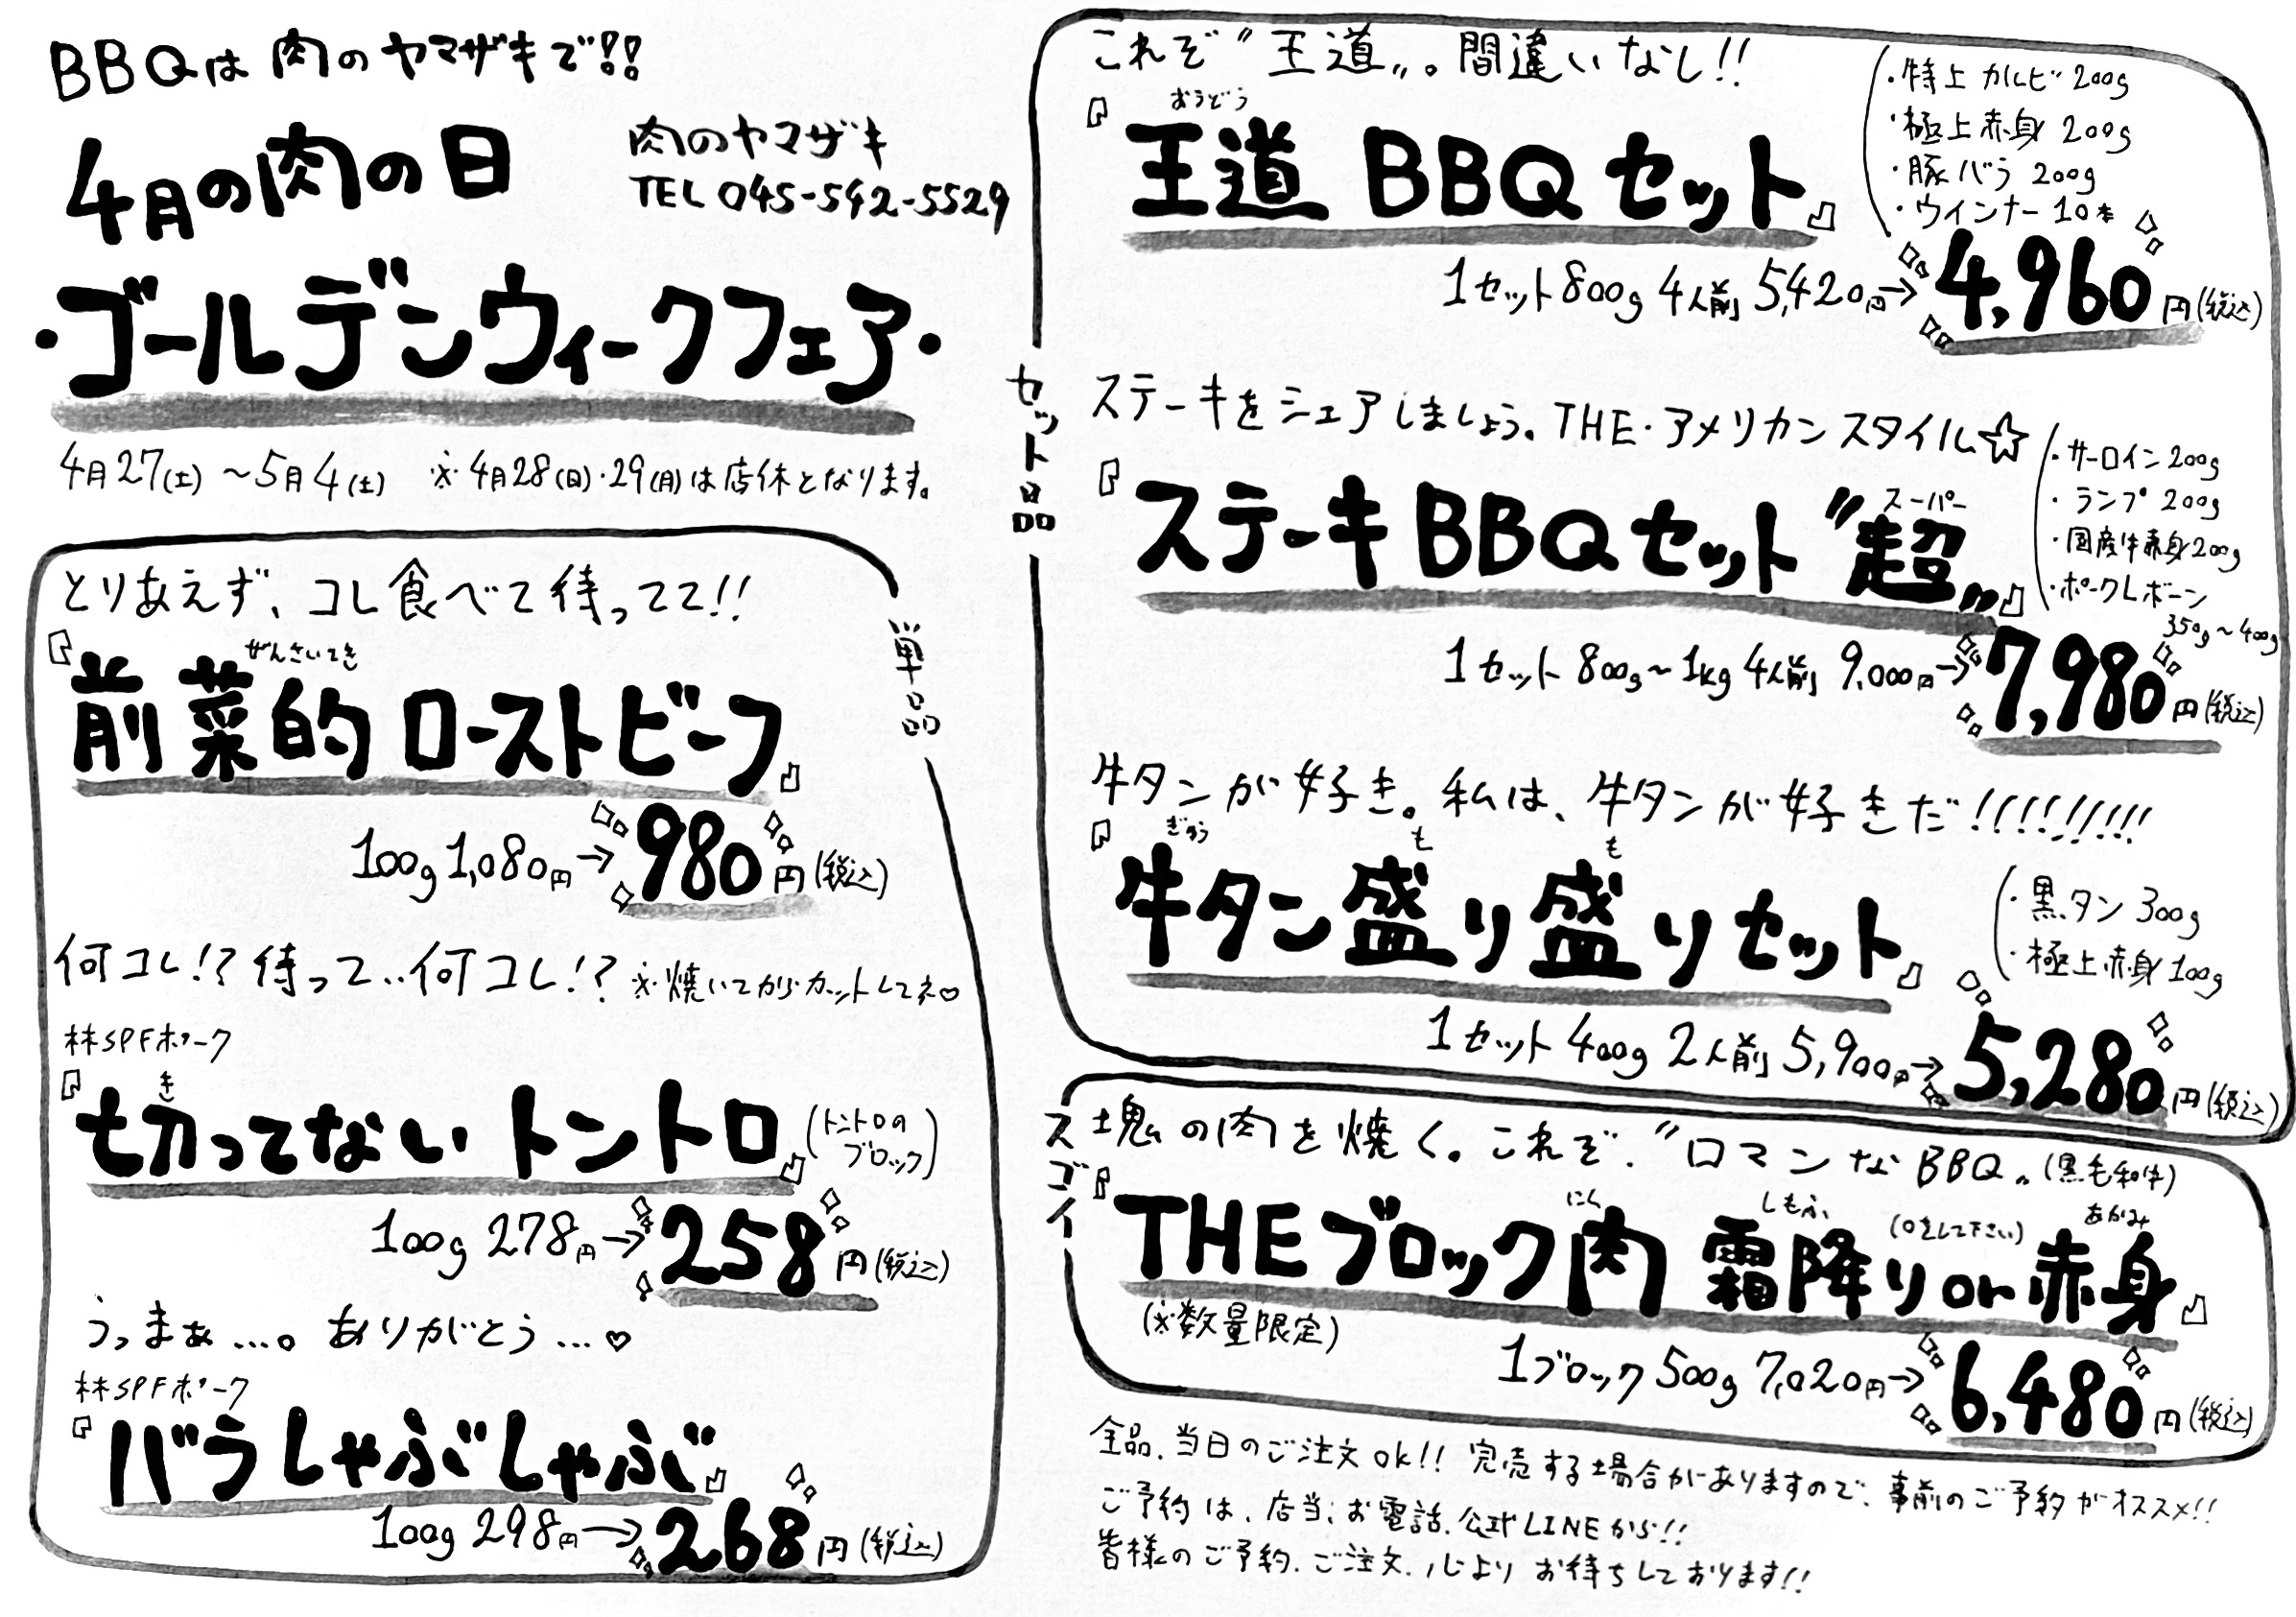 BBQは肉のヤマザキで!!
4月の肉の日
肉のヤマザキ
TEL 045-542-5529
・ゴールデンウィークフェア・
4月27(土)～5月4(土) ※4月28(日)・29(月)は店休となります。
単品
とりあえず、コレ食べて待ってて!!
ぜんさいてき
『前菜的ローストビーフ』
100g 1,080円→980円(税込)
何コレ!?待って‥何コレ!? ※焼いてからカットしてネ♡
林SPFポーク
き
『切ってないトントロ』(トントロのブロック)
100g 278円→258円(税込)
うっまぁ…。ありがとう…♡
林SPFポーク
『バラしゃぶしゃぶ』
100g 298円→268円(税込)
セット品
これぞ〝王道〟。間違いなし!!
おうどう
『王道BBQセット』
・特上カルビ 200g
・極上赤身 200g
・豚バラ 200g
・ウインナー 10本
1セット800g 4人前 5,420円→4,960円(税込)
ステーキをシェアしましょう。THE・アメリカンスタイル☆
スーパー
『ステーキBBQセット〝超〟』
・サーロイン 200g
・ランプ 200g
・国産牛赤身 200g
・ポークLボーン
350g～400g
1セット 800g～1kg 4人前 9,000円→7,980円(税込)
牛タンが好き。私は、牛タンが好きだ!!!!!!!!!
ぎゅう も も
『牛タン盛り盛りセット』
・黒タン 300g
・極上赤身 100g
1セット 400g 2人前 5,900円→5,280円(税込)
スゴイ
塊の肉を焼く。これぞ、〝ロマンなBBQ〟(黒毛和牛)
にく しもふ (○をして下さい) あかみ
『THEブロック肉 霜降りor赤身』
(※数量限定)
1ブロック 500g 7,020円→6,480円(税込)
全品、当日のご注文ok!! 完売する場合がありますので、事前のご予約がオススメ!!
ご予約は、店当、お電話、公式LINEから!!
皆様のご予約、ご注文、心よりお待ちしております!!